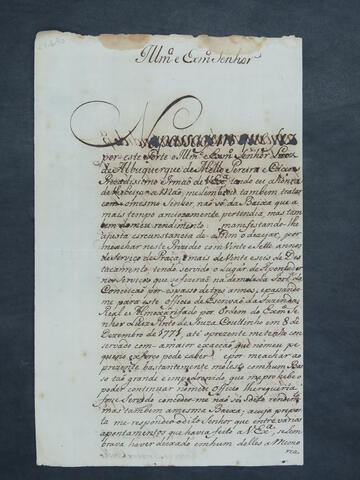 Illmo. e Exmo. Senhor
Na passagem que fez
por este Forte o Illmo. e Exmo. Senhor Luiz
de Albuquerque de Mello Pereira e Cáceres
Prezadissimo Irmão de V. Exa. tive a honra
de beijar-lhe a Mão, me lembro tambem tratar
com o mesmo Senhor, não só da Baixa que a
mais tempo anciozamente pertendia, mas tam
bem do meu rendimento manifestando-lhe
a justa circunstancia de assim o dezejar, por
me achar neste Prezidio com Vinte e Sette annos
de Serviço de Praça, e mais de Vinte e seis de Des
tacamento tendo servido o Lugar de Apontador
nos Serviços que se fizerão na demolida Forta
Conceição por espasso de tres annos, e passando
me para este officio de Escrivão da Fazenda
Real e Almoxarifado por Ordem do Exmo. Se
nhor Luiz Pinto de Souza Coutinho em 8 de
Dezembro de 1771, até o prezente me tenho con
servado com a maior exacção que no meu pe
queno exforço pode caber e por me achar ao
prezente bastantemente molesto com hum Ba
so tão grande e empedrenido que me prohibe o
poder continuar no mesmo Officio lhe requeria
fosse Servido conceder-me não só o dito rendimto.
mas tambem a mesma Baixa; a cuja propos
ta me respondeo o dito Senhor que entre varios
apontamentos que havia feito a V. Exa., se lem
brava haver deixado em hum delles a Memo
ria